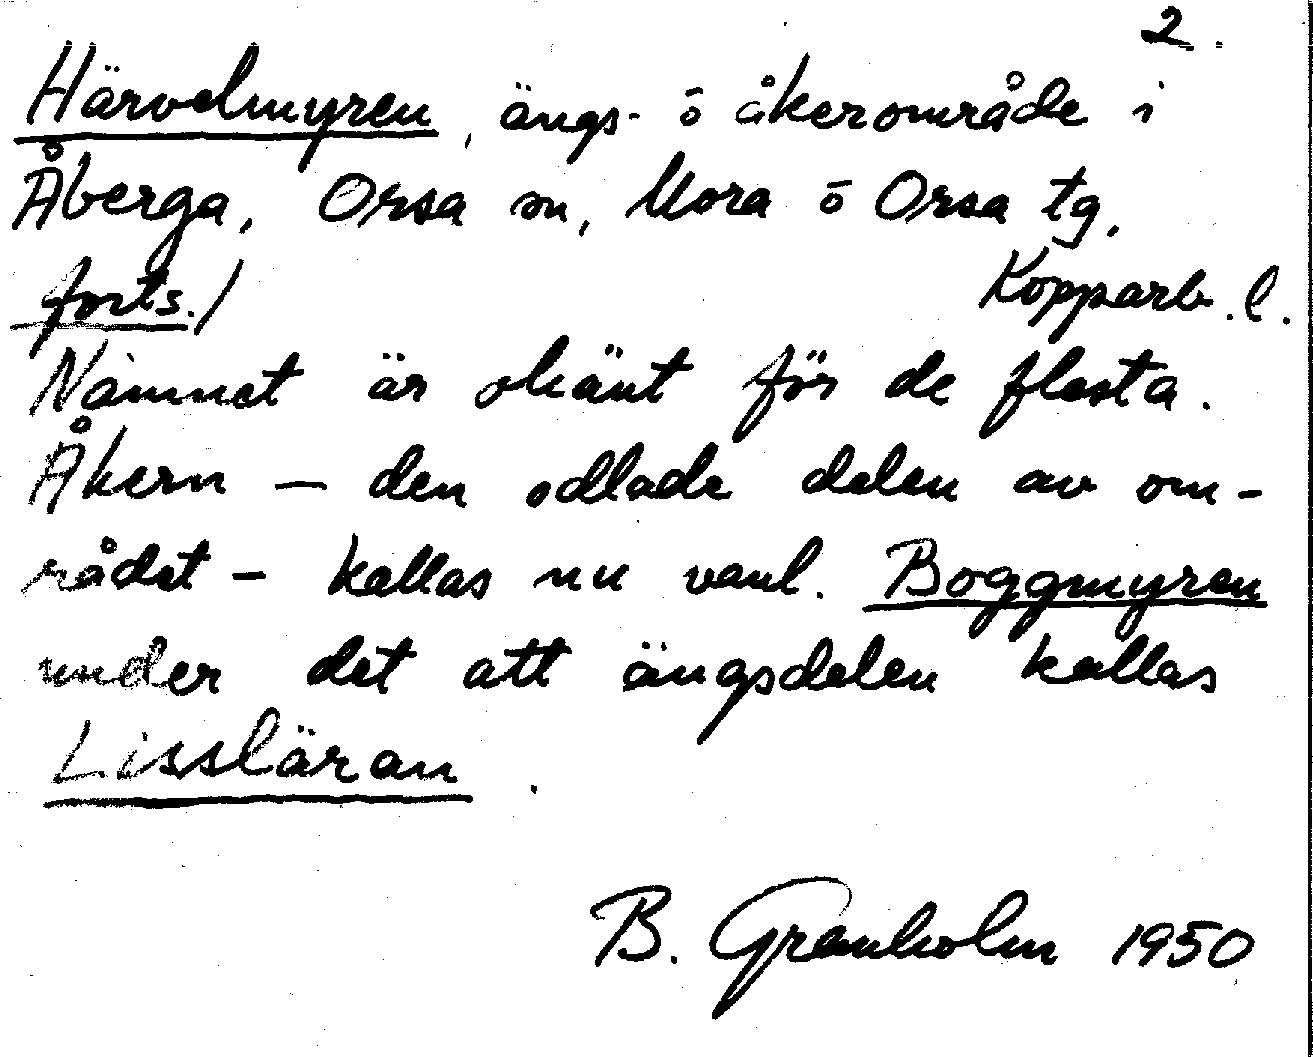 2.
Härvelmyren, ängs- ō åkerområde i
Åberga, Orsa sn, Mora ō Orsa tg.
forts./ Kopparb. l.
Namnet är okänt för de flesta.
Åkern – den odlade delen av om-
rådet – kallas nu vanl. Boggmyren
under det att ängsdelen kallas
Lissläran.
B. Granholm 1950